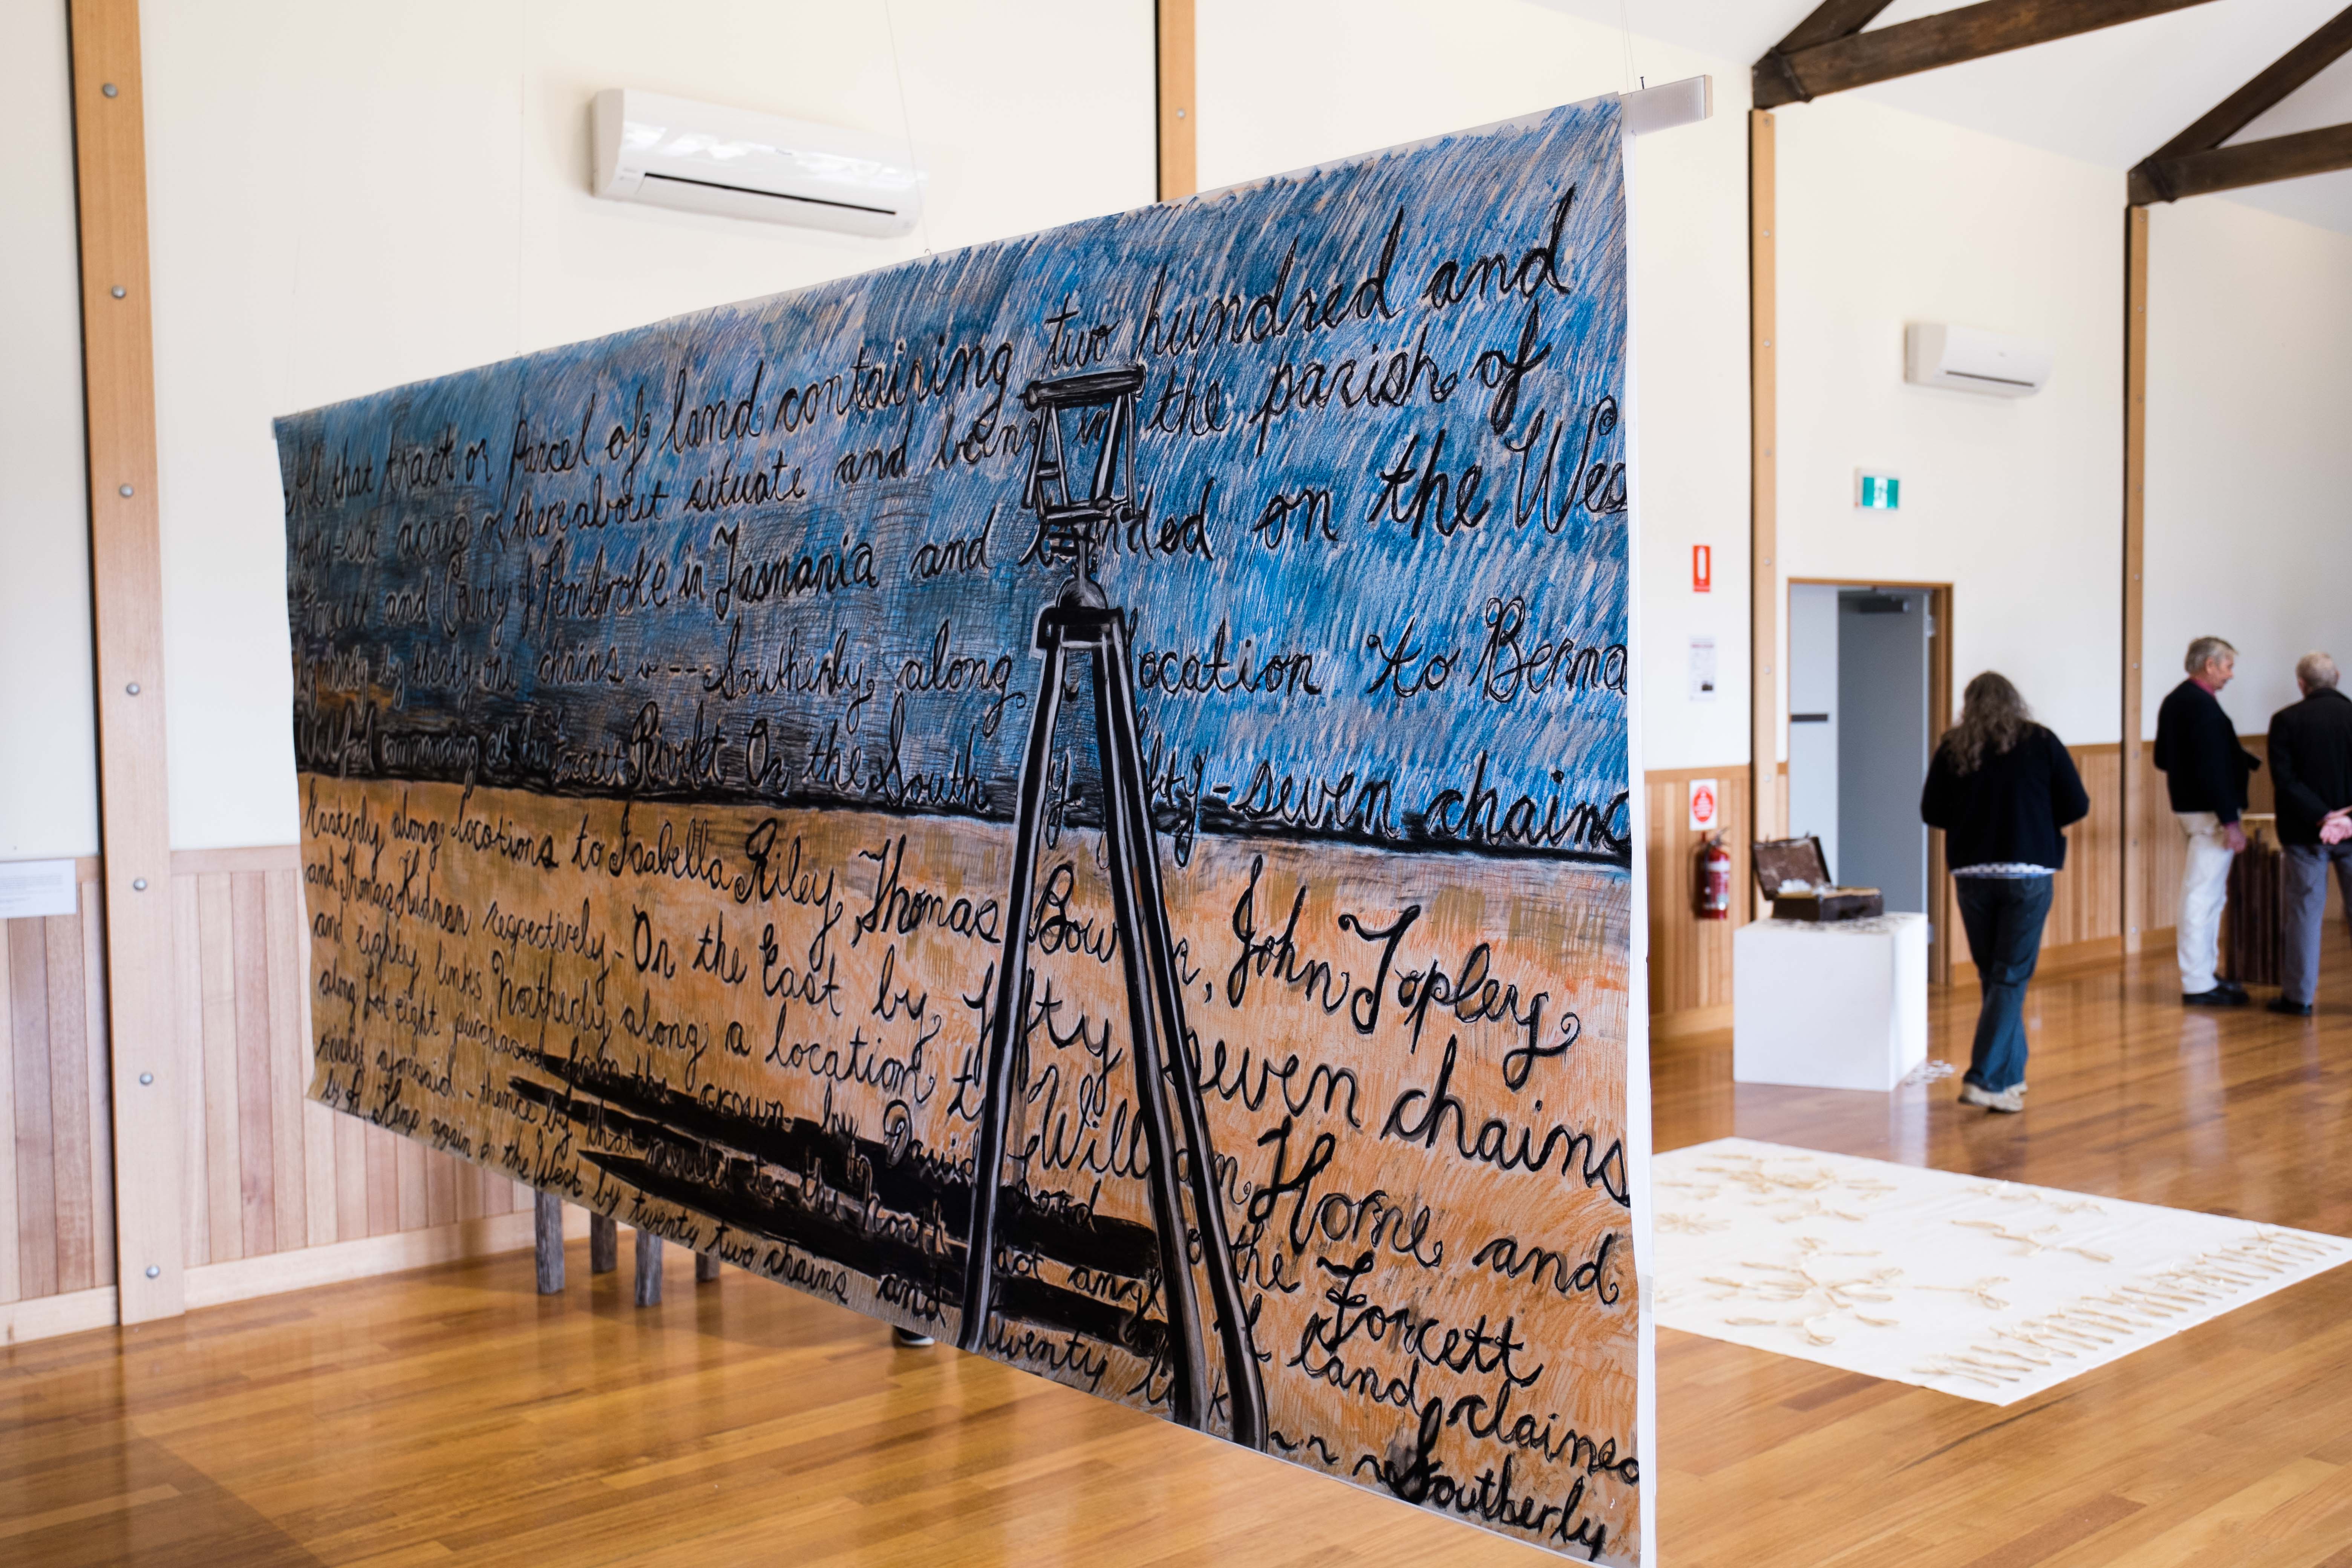 All that tract or parcel of land containing two hundred and
-six acres or thereabout situate and being in the parish of
Forcett and County of Pembroke in Tasmania and bounded on the Wes
by thirty-one chains Southerly along location to Berna
commencing at the Forcett Rivulet On the South by fifty-seven chains
Easterly along locations to Isabella Riley, Thomas Bow n, John Topley
and Thomas Kidner respectively - On the East by fifty seven chains
and eighty links Northerly along a location to William Horne and
along lot eight purchased from the crown by David Lord to the Forcett
rivulet aforesaid - thence by that rivulet to the north angle land claimed
by A. again on the West by twenty two chains and twenty link Southerly